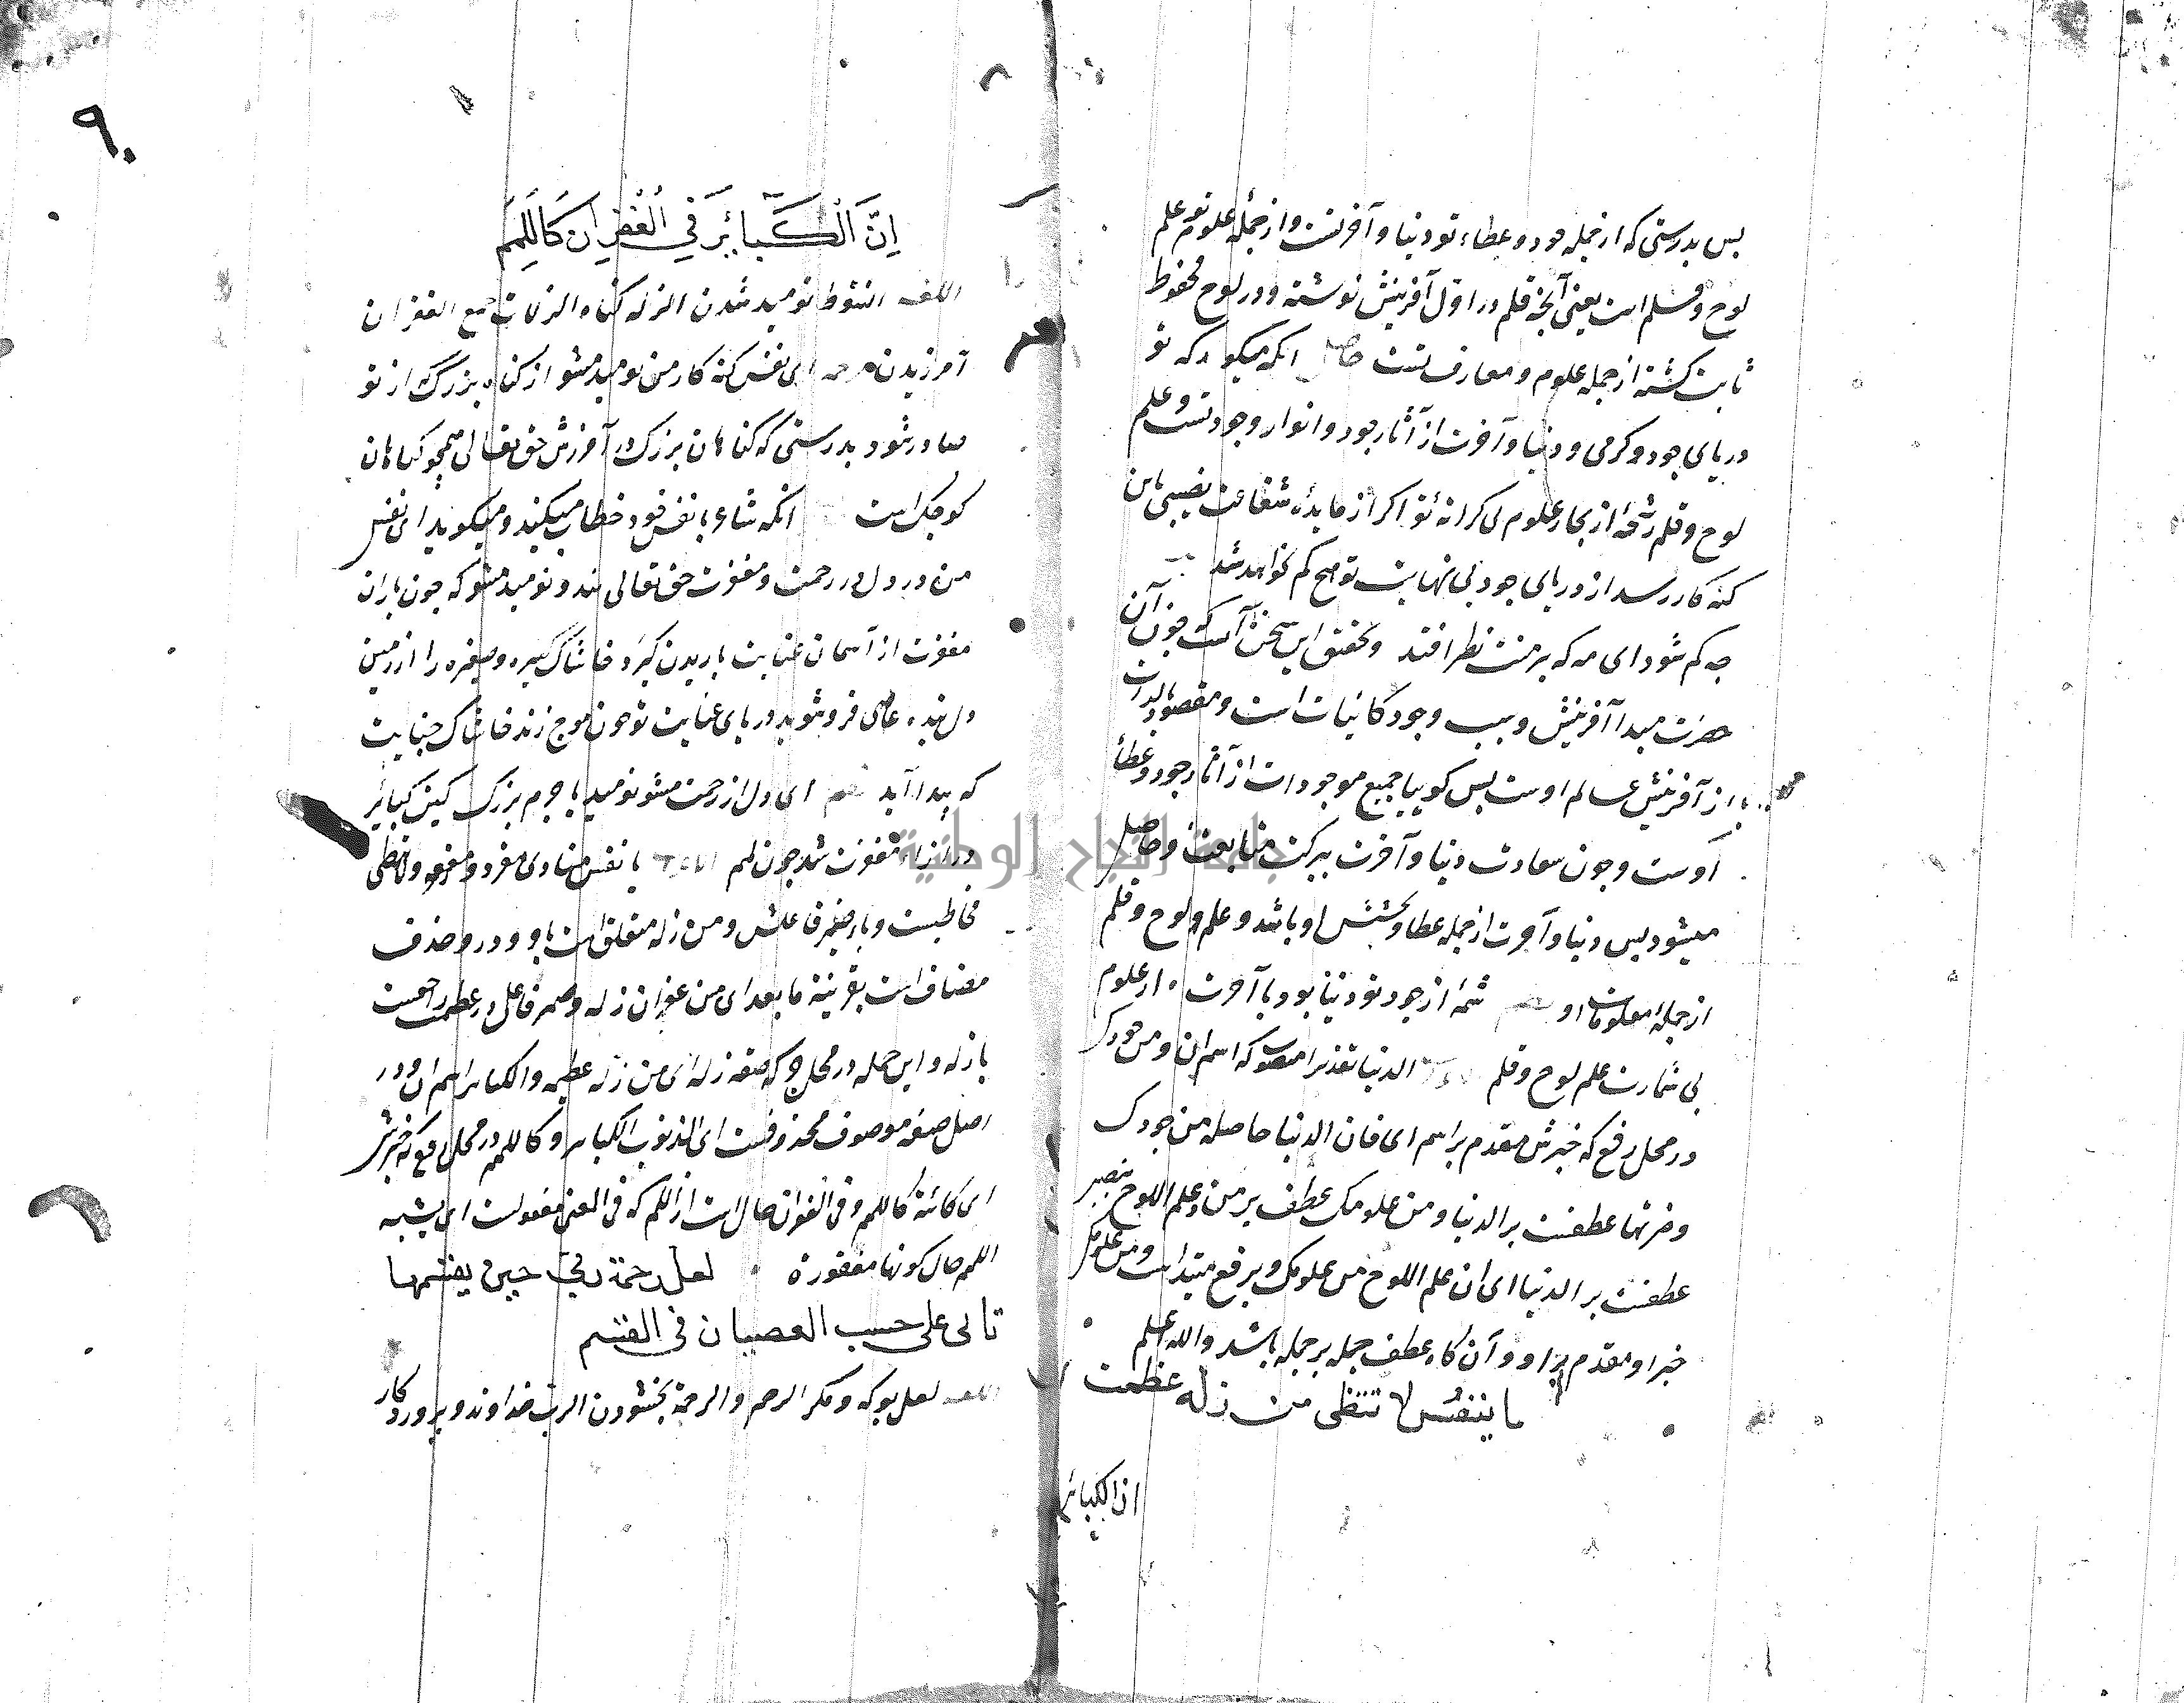 پس بدرستی که از جمله جود و عطاء تو دنیا و آخرتست و از جملهٔ علوم تو علم
لوح و قلم است یعنی آنچه قلم در اوّل آفرینش نوشته و در لوح محفوظ
ثابت کشته از جمله علوم و معارف تست حاصل انکه میکوید که تو
دریای جود و کرمی و دنیا و آخرت از آثار جود و انوار وجود تست و علم
لوح و قلم رشحهٔ از بحار علوم بی کرانهٔ تو اکر از مایدهٔ شفاعت نصیبی باین
کنه کار رسد از دریای جود بی نهایت تو هیچ کم نخواهد شد
چه کم شود ای مه که بر منت نظر افتد و تحقیق این سخن آنست که چون آن
حضرت مبدا آفرینش و سبب وجود کاینات است و مقصود بالذات
از آفرینش عالم اوست پس کوییا جمیع موجودات از آثار جود و عطاء
اوست و چون سعادت دنیا و آخرت ببرکت متابعت او حاصل
میشود پس دنیا و آخرت از جمله عطا و بخشش او باشد و علم لوح و قلم
از جملهٔ معلومات او نظم شمهٔ از جود تو دنیا بود با آخرت از علوم
بی شمارت علم لوح و قلم الدنیا تقدیرا منصوب که اسم ان و من جودک
در محل رفع که خبرش مقدم بر اسم ای فان الدنیا حاصله من جودک
و ضرتها عطفست بر الدنیا و من علومک عطف بر من و علم اللوح بنصب
عطفست بر الدنیا ای ان علم اللوح من علومک و برفع مبتداست و من علومک
خبر او مقدم بر او و آن کاه عطف جمله بر جمله باشد والله اعلم
یا نفس لا تقنطی من زلة عظمت
ان الکبائر
٩٠
اِنَّ الْکَبَائِرَ فِی الْغُفْرَانِ کَاللَّمَمِ
اللغه القنوط نومید شدن الزله کناه الزلات جمع الغفران
آمرزیدن ترجمه ای نفس کنه کار من نومید مشو از کناه بزرک از تو
صادر شود بدرستی که کناهان بزرک در آمرزش حق تعالی همچو کناهان
کوچک است انکه شاعر با نفس خود خطاب میکند و میکوید ای نفس
من در دل در رحمت و مغفرت حق تعالی بند و نومید مشو که چون باران
مغفرت از آسمان عنایت باریدن کیرد خاشاک کبیره و صغیره را از زمین
دل بنده عاصی فرو شوید دریای عنایت تو چون موج زند خاشاک جنایت
که پیدا آید نظم ای دل از رحمت مشو نومید با جرم بزرک کین کبائر
در ازاء مغفرت شد چون لمم یا نفس منادی مفرد معرفه و لا تقنطی
مخاطبست و یا ضمیر فاعلش و من زله متعلق است باو و درو حذف
مضاف است بقرینهٔ ما بعد ای من غفران زله و ضمیر فاعل در عظمت راجعست
با زله و این جمله در محل جر که صفه زله ای من زلة عظیمه و الکبائر اسم ان و در
اصل صفه موصوف محذوفست ای الذنوب الکبائر و کاللمم در محل رفع که خبرش
ای کائنة کاللمم و فی الغفران حال است از اللمم که فی المعنی مفعولست ای یشبه
اللمم حال کونها مغفورة لعل رحمة ربی حین یقسمها
تاتی علی حسب العصیان فی القسم
اللغه لعل بوکه و مکر الرحم و الرحمة بخشودن الرب خداوند و پروردکار
جامعة النجاح الوطنية